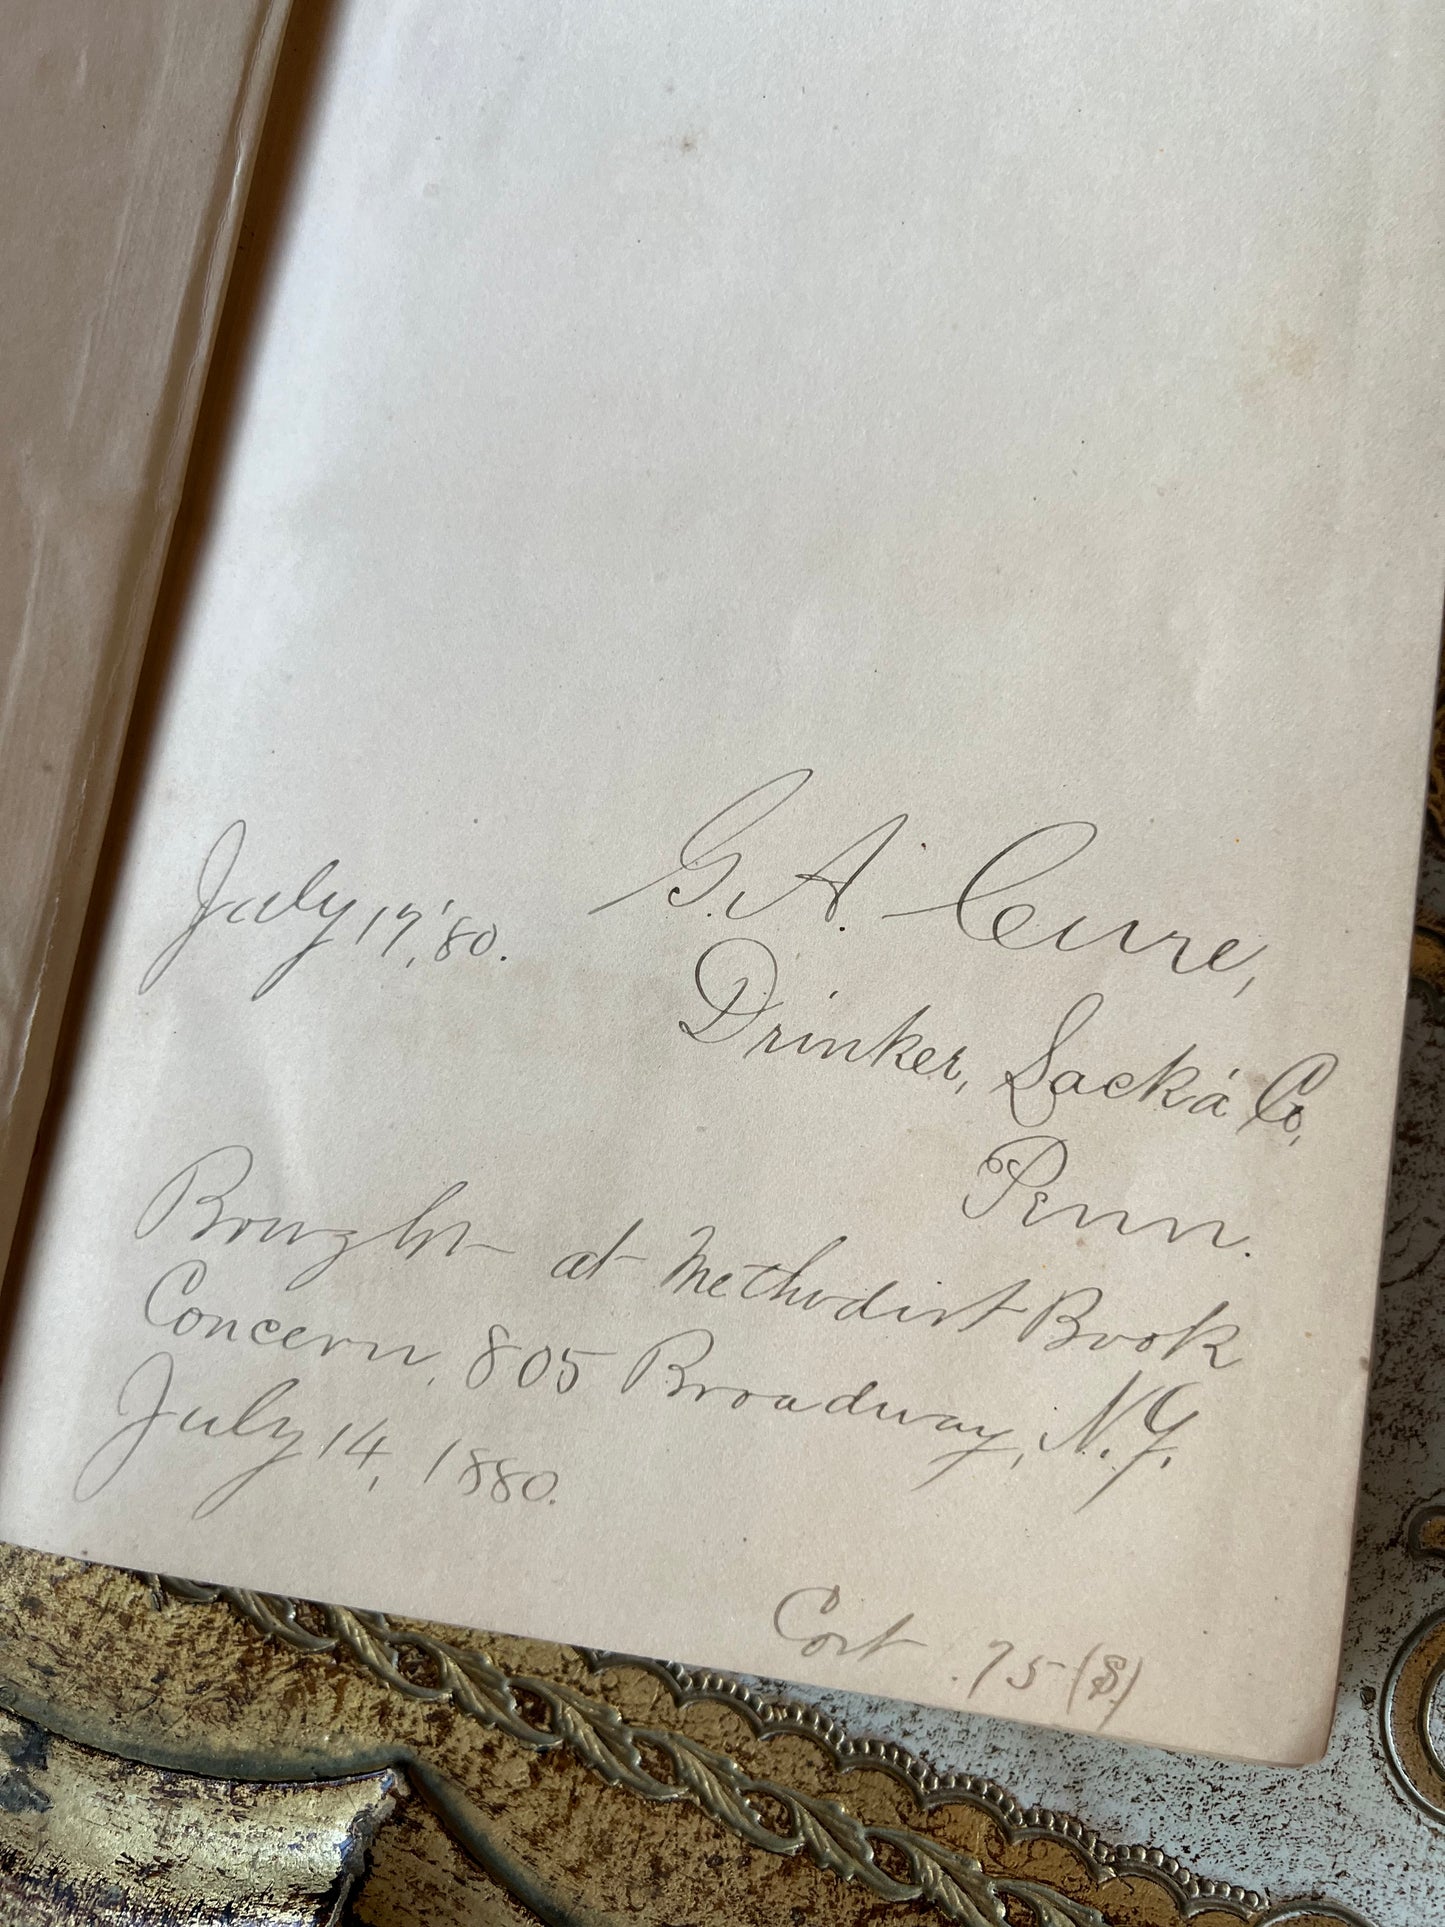 July 17, '80. G. A. Cure,
Drinker, Lacka' Co,
Penn.
Bought at Methodist Book
Concern, 805 Broadway, N.Y.
July 14, 1880.
Cost .75 ($)